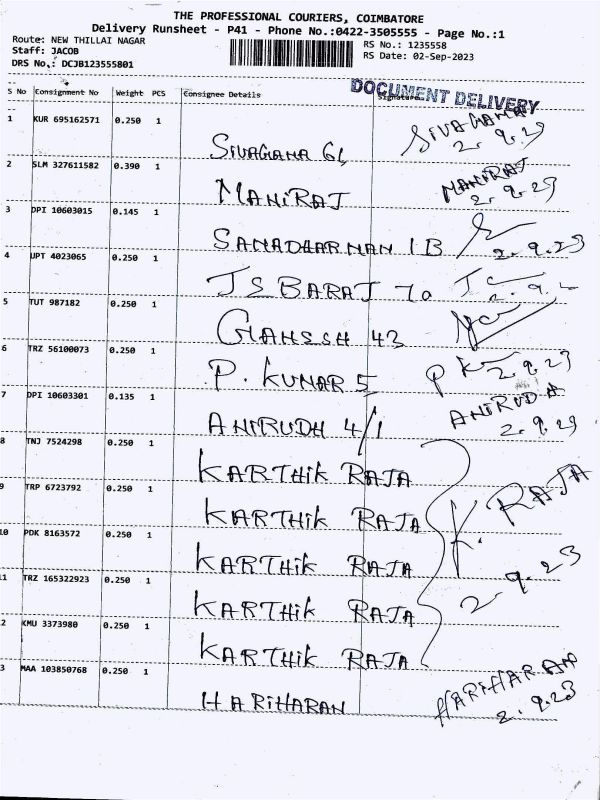 THE PROFESSIONAL COURIERS, COIMBATORE
Delivery Runsheet - P41 - Phone No.:0422-3505555 - Page No.:1
Route: NEW THILLAI NAGAR RS No.: 1235558
Staff: JACOB RS Date: 02-Sep-2023
DRS No,: DCJB123555801
DOCUMENT DELIVERY
S No Consignment No Weight PCS Consignee Details Signature
1 KUR 695162571 0.250 1
SIVAGAMA 61 SIVAGAMA
2.9.23
2 SLM 327611582 0.390 1
MANIRAJ MANIRAJ
2.9.23
3 DPI 10603015 0.145 1
SANADHARMAN 1B 2.9.23
4 UPT 4023065 0.250 1
JS BARAT 70
5 TUT 987182 0.250 1
GAHSSH 43
6 TRZ 56100073 0.250 1
P. KUNAR 5 2.9.23
7 DPI 10603301 0.135 1
ANIRUDH 4/1 ANIRUDH
2.9.23
8 TNJ 7524298 0.250 1
KARTHIK RAJA
9 TRP 6723792 0.250 1
KARTHIK RAJA K. RAJA
10 PDK 8163572 0.250 1
KARTHIK RAJA 2.9.23
11 TRZ 165322923 0.250 1
KARTHIK RAJA
2 KMU 3373980 0.250 1
KARTHIK RAJA
3 MAA 103850768 0.250 1
HARIHARAN HARIHARAN
2.9.23